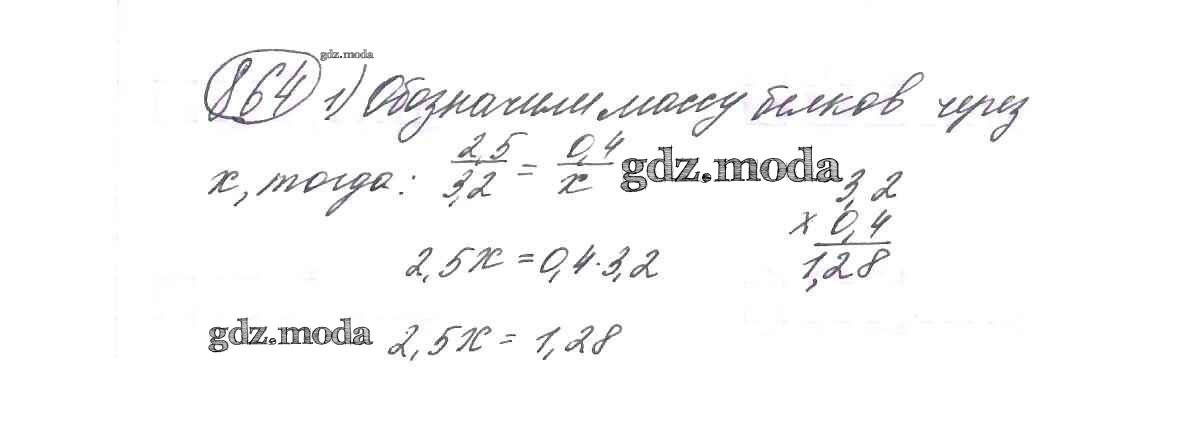 gdz.moda
864 1) Обозначили массу белков через
x, тогда: 2,5/3,2 = 0,4/x gdz.moda
3,2
× 0,4
1,28
2,5x = 0,4·3,2
gdz.moda 2,5x = 1,28